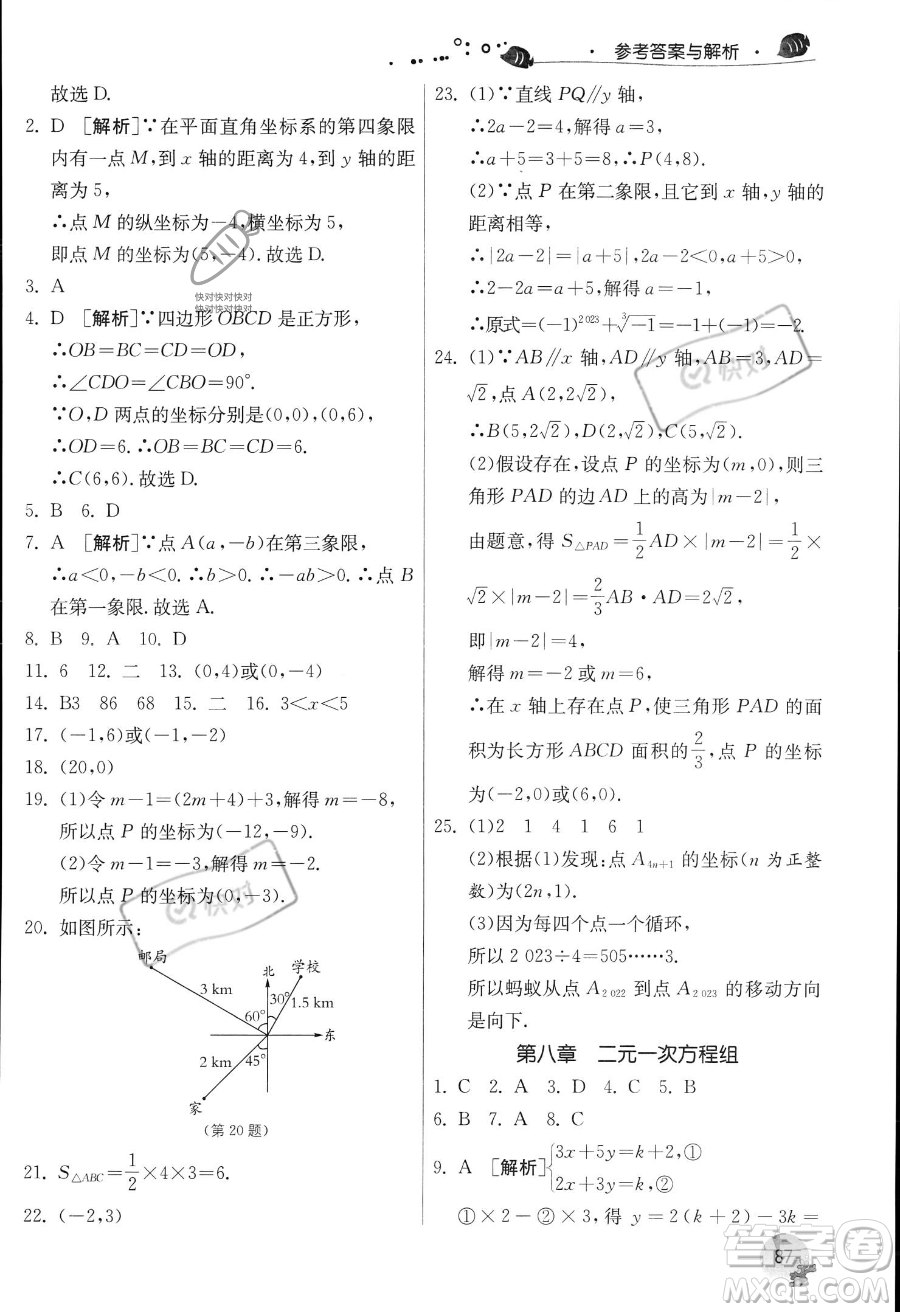 · 参考答案与解析 ·
故选 D.
2. D [解析]∵在平面直角坐标系的第四象限
内有一点 M,到 x 轴的距离为 4,到 y 轴的距
离为 5,
∴点 M 的纵坐标为-4,横坐标为 5,
即点 M 的坐标为(5,-4).故选 D.
3. A
快对快对快对
快对快对快对
4. D [解析]∵四边形 OBCD 是正方形,
∴OB=BC=CD=OD,
∴∠CDO=∠CBO=90°.
∵O,D 两点的坐标分别是(0,0),(0,6),
∴OD=6.∴OB=BC=CD=6.
∴C(6,6).故选 D.
5. B 6. D
7. A [解析]∵点 A(a,-b)在第三象限,
∴a<0,-b<0.∴b>0.∴-ab>0.∴点 B
在第一象限.故选 A.
8. B 9. A 10. D
11. 6 12. 二 13. (0,4)或(0,-4)
14. B3 86 68 15. 二 16. 3<x<5
17. (-1,6)或(-1,-2)
18. (20,0)
19. (1)令 m-1=(2m+4)+3,解得 m=-8,
所以点 P 的坐标为(-12,-9).
(2)令 2m+4=0,解得 m=-2.
所以点 P 的坐标为(0,-3).
快对
20. 如图所示:
邮局
北
学校
3 km
30°
1.5 km
60°
东
2 km
45°
家
(第 20 题)
21. S△ABC=1/2×4×3=6.
22. (-2,3)
23. (1)∵直线 PQ∥y 轴,
∴2a-2=4,解得 a=3,
∴a+5=3+5=8,∴P(4,8).
(2)∵点 P 在第二象限,且它到 x 轴、y 轴的
距离相等,
∴|2a-2|=|a+5|,∴2a-2<0,a+5>0,
∴2-2a=a+5,解得 a=-1,
∴原式=(-1)^2 023+∛-1=-1-1=-2.
快对
24. (1)∵AB∥x 轴,AD∥y 轴,AB=3,AD=
√2,点 A(2,2√2),
∴B(5,2√2),D(2,√2),C(5,√2).
(2)假设存在,设点 P 的坐标为(m,0),则三
角形 PAD 的边 AD 上的高为|m-2|,
由题意,得 S△PAD=1/2AD×|m-2|=1/2×
√2×|m-2|=2/3AB·AD=2√2,
即|m-2|=4,
解得 m=-2 或 m=6,
∴在 x 轴上存在点 P,使三角形 PAD 的面
积为长方形 ABCD 面积的2/3,点 P 的坐标
为(-2,0)或(6,0).
25. (1)2 1 4 1 6 1
(2)根据(1)发现:点 A4n+1 的坐标(n 为正整
数)为(2n,1).
(3)因为每四个点一个循环,
所以 2 023÷4=505……3.
所以蚂蚁从点 A2 022 到点 A2 023 的移动方向
是向下.
第八章 二元一次方程组
1. C 2. A 3. D 4. C 5. B
6. B 7. A 8. C
9. A [解析]{3x+5y=k+2,①
2x+3y=k,②
①×2-②×3,得 y=2(k+2)-3k=
87
答案圈
MXQE.COM